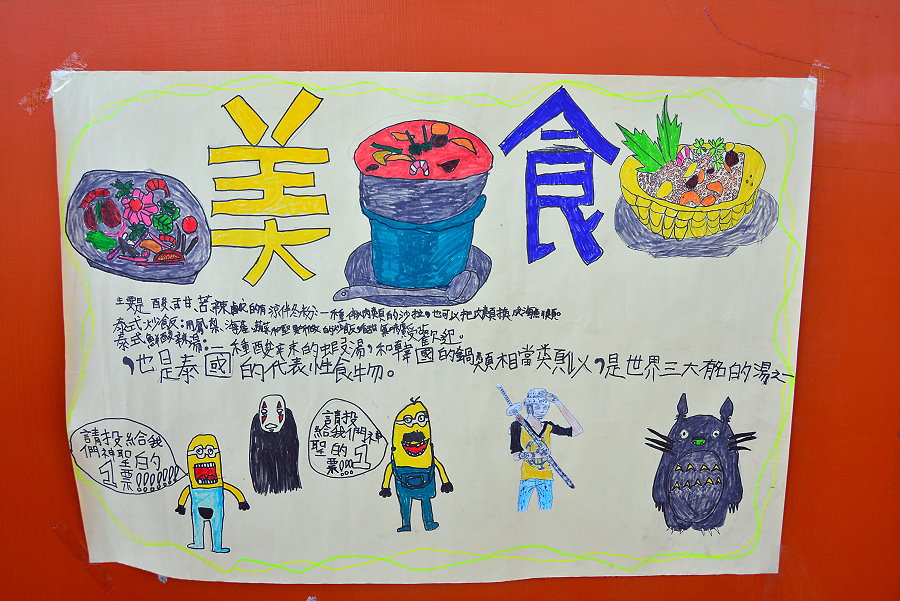 美食
主要是酸、甜、苦、辣、鹹的有涼伴冬粉、一種無肉類的沙拉,也可以把肉類換成海鮮類。
泰式炒飯:用鳳梨、海產、蔬
泰式鮮酸辣湯:一種酸辛末的蝦湯,和韓國的鍋類相當類似,是世界三大有名的湯之一
,也是泰國的代表性食物。
請投給我
們神
聖的
1
票!!!!!!!
請投
給我們神
聖的
1
票!!!